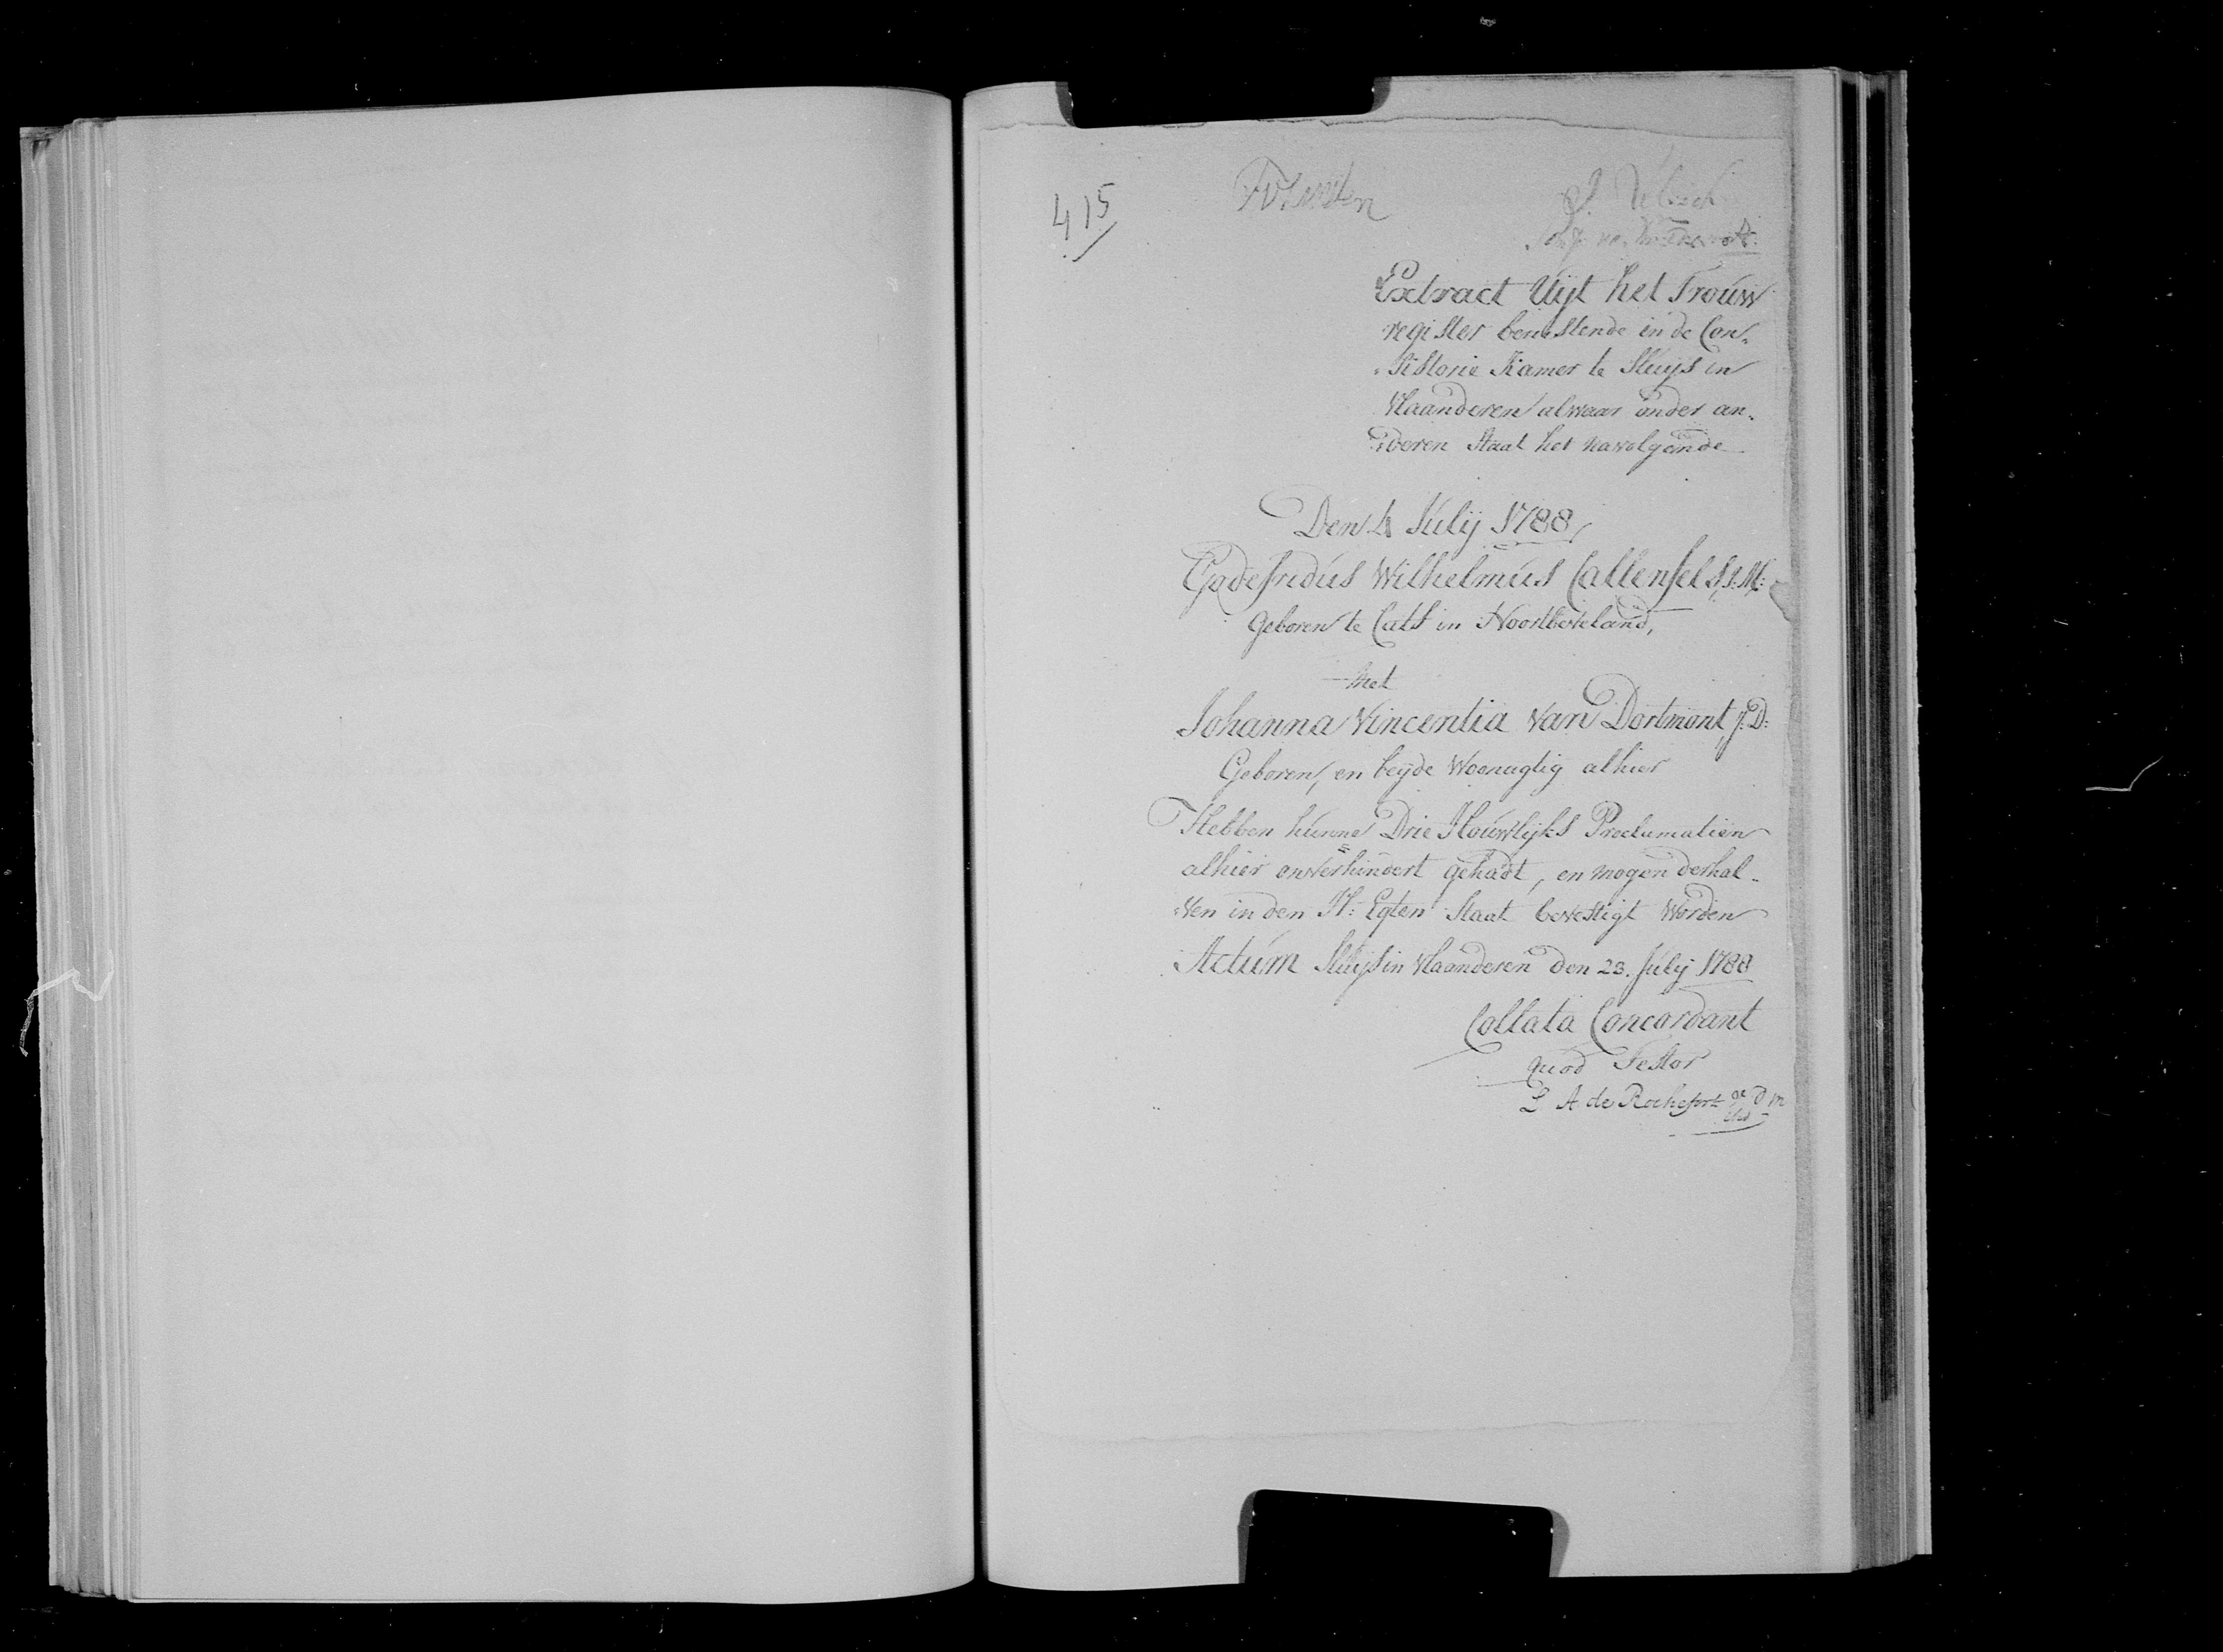 415
Extract Uijt het Trouw
register berustende in de Con„
„sistorie Kamer te Sluijs in
Vlaanderen alwaar onder an„
„deren Staat het navolgende
Den 4 Julij 1788,
Godefridus Wilhelmus Callenfels J: M:
Geboren te Cats in Noortbeveland,
met
Johanna Vincentia van Dortmont, J: D:
Geboren, en beijde Woonagtig alhier
Hebben hunne Drie Houwlijks Proclamatiën
alhier onverhindert gehadt, en mogen derhal„
„ven in den H: Egten Staat bevestigt Worden
Actum Sluijs in Vlaanderen den 23. Julij 1788
Collata Concordant
quod Testor
L A de Rochefort